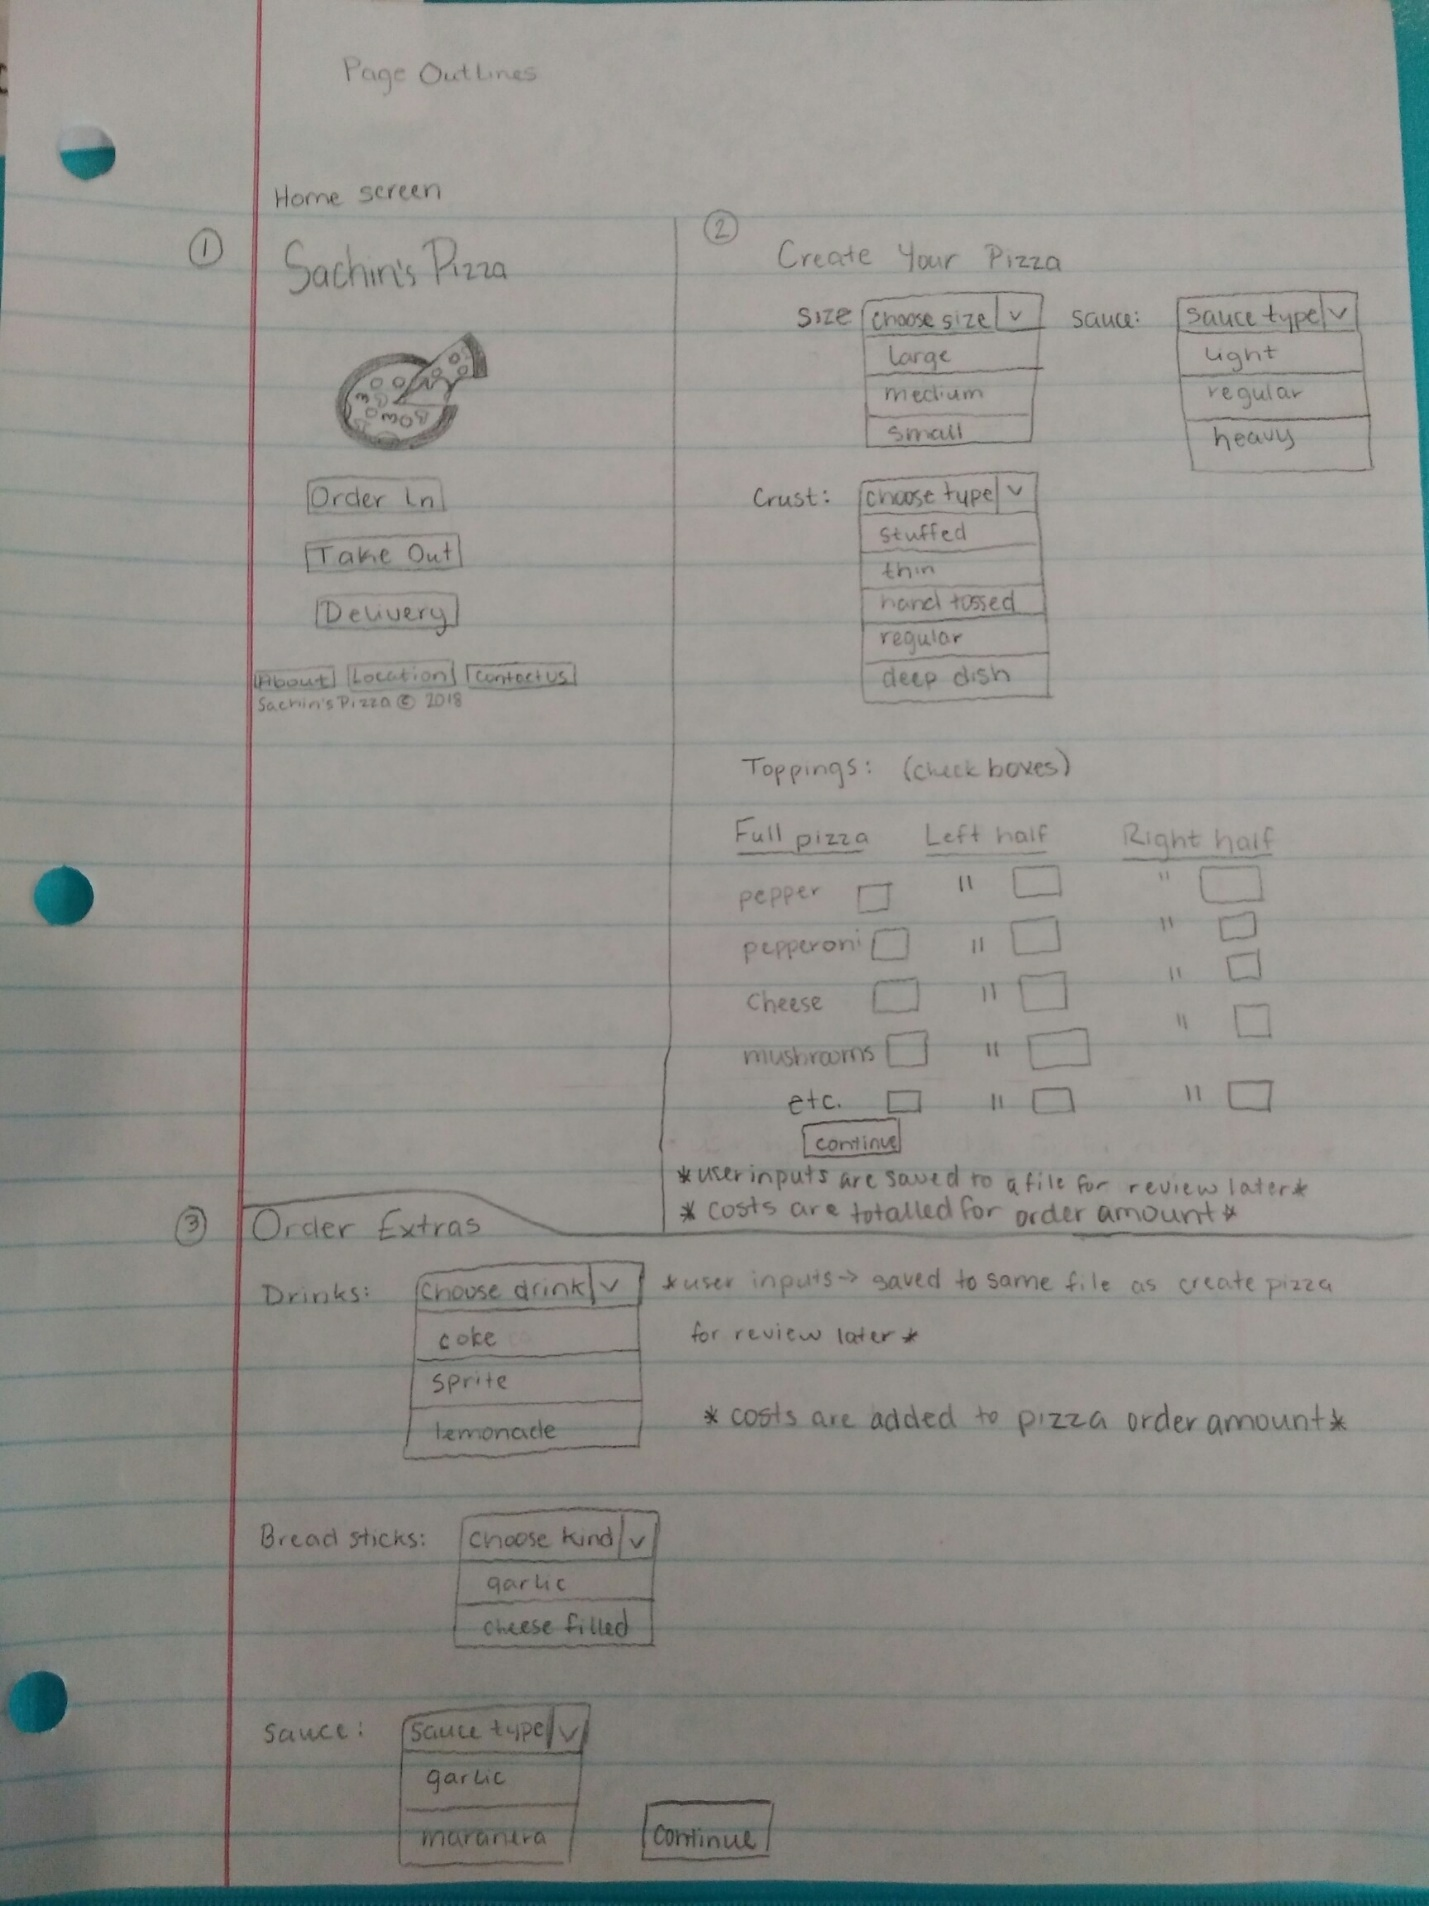 Page Outlines
Home screen
①
Sachin's Pizza
Order In
Take Out
Delivery
About Location Contact us
Sachin's Pizza © 2018
②
Create Your Pizza
Size choose size v sauce: sauce type v
large light
medium regular
small heavy
Crust: choose type v
stuffed
thin
hand tossed
regular
deep dish
Toppings: (check boxes)
Full pizza Left half Right half
pepper " "
pepperoni " "
Cheese " "
mushrooms " "
etc. " "
continue
*user inputs are saved to a file for review later*
* costs are totalled for order amount*
③ Order Extras
Drinks: Choose drink v *user inputs→ saved to same file as create pizza
coke for review later*
sprite
lemonade * costs are added to pizza order amount*
Bread sticks: Choose kind v
garlic
cheese filled
Sauce: Sauce type v
garlic
maranera
Continue